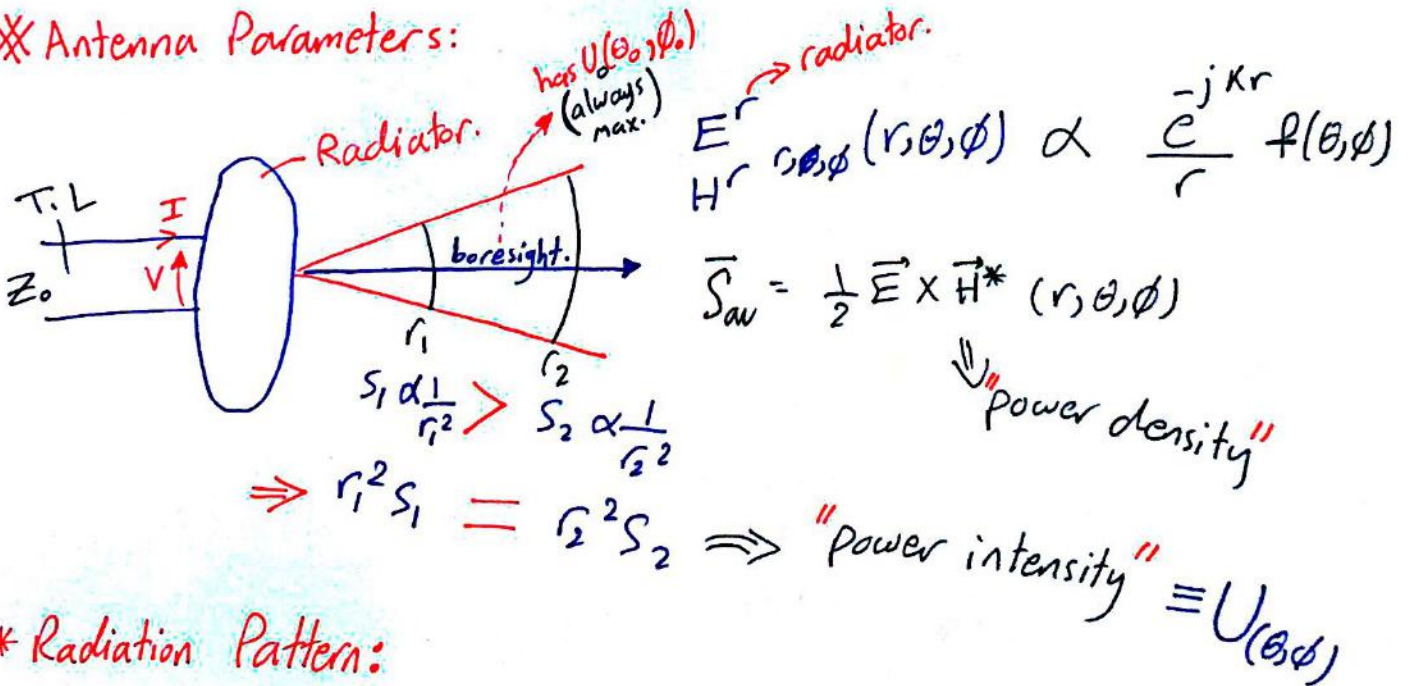 ※ Antenna Parameters:
has U₀(θ₀,φ₀)
(always max.)
Radiator.
T.L
I
V
Z₀
boresight.
r₁
r₂
S₁ ∝ 1/r₁² > S₂ ∝ 1/r₂²
⇒ r₁² S₁ = r₂² S₂ ⇒ "Power intensity" ≡ U(θ,φ)
→ radiator.
E^r
H^r r,θ,φ (r,θ,φ) ∝ e^-jKr / r f(θ,φ)
S⃗av = 1/2 E⃗ × H⃗* (r,θ,φ)
⇓ "power density"
* Radiation Pattern: